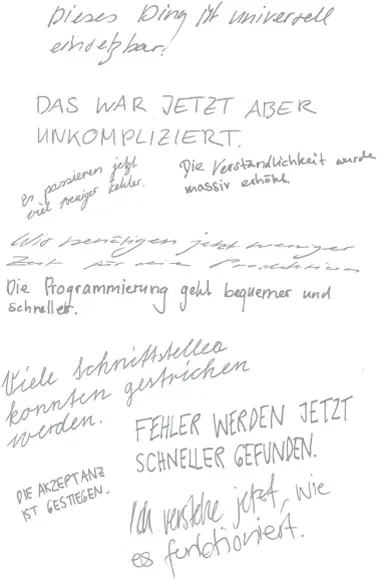 Dieses Ding ist universell
einsetzbar!
DAS WAR JETZT ABER
UNKOMPLIZIERT.
es passieren jetzt
viel weniger Fehler.
Die Verständlichkeit wurde
massiv erhöht.
Wir benötigen jetzt weniger
Zeit für die Produktion
Die Programmierung geht bequemer und
schneller.
Viele Schnittstellen
konnten gestrichen
werden.
FEHLER WERDEN JETZT
SCHNELLER GEFUNDEN.
DIE AKZEPTANZ
IST GESTIEGEN.
Ich verstehe jetzt, wie
es funktioniert.